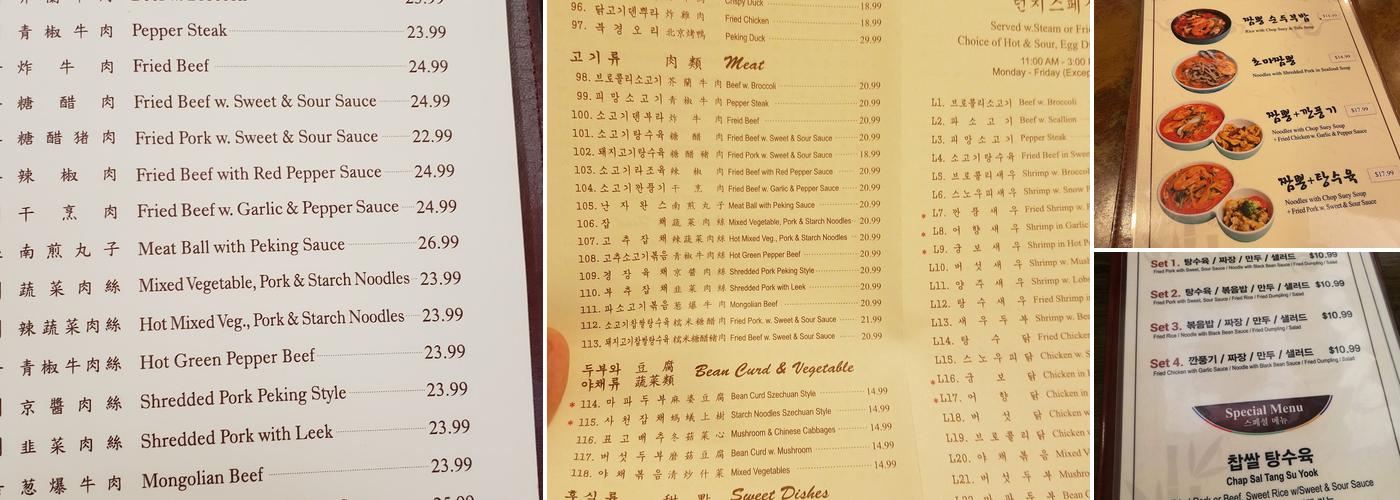 青椒牛肉 Pepper Steak 23.99
炸牛肉 Fried Beef 24.99
糖醋肉 Fried Beef w. Sweet & Sour Sauce 24.99
糖醋猪肉 Fried Pork w. Sweet & Sour Sauce 22.99
辣椒肉 Fried Beef with Red Pepper Sauce 24.99
干烹肉 Fried Beef w. Garlic & Pepper Sauce 24.99
南煎丸子 Meat Ball with Peking Sauce 26.99
蔬菜肉絲 Mixed Vegetable, Pork & Starch Noodles 23.99
辣蔬菜肉絲 Hot Mixed Veg., Pork & Starch Noodles 23.99
青椒牛肉絲 Hot Green Pepper Beef 23.99
京醬肉絲 Shredded Pork Peking Style 23.99
韭菜肉絲 Shredded Pork with Leek 23.99
葱爆牛肉 Mongolian Beef 23.99
96. 닭고기덴뿌라 炸雞肉 Fried Chicken 18.99
97. 북경오리 北京烤鴨 Peking Duck 29.99
고기류 肉類 Meat
98. 브로콜리소고기 芥蘭牛肉 Beef w. Broccoli 20.99
99. 피망소고기 青椒牛肉 Pepper Steak 20.99
100. 소고기덴부라 炸牛肉 Freid Beef 20.99
101. 소고기탕수육 糖醋肉 Fried Beef w. Sweet & Sour Sauce 20.99
102. 돼지고기탕수육 糖醋豬肉 Fried Pork w. Sweet & Sour Sauce 18.99
103. 소고기라조육 辣椒肉 Fried Beef with Red Pepper Sauce 20.99
104. 소고기깐풍기 干烹肉 Fried Beef w. Garlic & Pepper Sauce 20.99
105. 난자완스 南煎丸子 Meat Ball with Peking Sauce 20.99
106. 잡채 蔬菜肉絲 Mixed Vegetable, Pork & Starch Noodles 20.99
107. 고추잡채 辣蔬菜肉絲 Hot Mixed Veg., Pork & Starch Noodles 20.99
108. 고추소고기볶음 青椒牛肉絲 Hot Green Pepper Beef 20.99
109. 경장육채 京醬肉絲 Shredded Pork Peking Style 20.99
110. 부추잡채 韭菜肉絲 Shredded Pork with Leek 20.99
111. 파소고기볶음 葱爆牛肉 Mongolian Beef 20.99
112. 소고기찹쌀탕수육 糯米糖醋肉 Fried Pork. w. Sweet & Sour Sauce 21.99
113. 돼지고기찹쌀탕수육 糯米糖醋豬肉 Fried Beef w. Sweet & Sour Sauce 20.99
두부와 야채류 豆腐 蔬菜類 Bean Curd & Vegetable
* 114. 마파두부 麻婆豆腐 Bean Curd Szechuan Style 14.99
* 115. 사천잡채 螞蟻上樹 Starch Noodles Szechuan Style 14.99
116. 표고배추 冬菇菜心 Mushroom & Chinese Cabbages 14.99
117. 버섯두부 磨菇豆腐 Bean Curd w. Mushroom 14.99
118. 야채볶음 清炒什菜 Mixed Vegetables 14.99
Sweet Dishes
Served w.Steam or Frie
Choice of Hot & Sour, Egg D
11:00 AM - 3:00
Monday - Friday (Excep
L1. 브로콜리소고기 Beef w. Broccoli
L2. 파소고기 Beef w. Scallion
L3. 피망소고기 Pepper Steak
L4. 소고기탕수육 Fried Beef in Swee
L5. 브로콜리새우 Shrimp w. Broccol
L6. 스노우피새우 Shrimp w. Snow
* L7. 깐풍새우 Fried Shrimp w.
* L8. 어향새우 Shrimp in Garlic
* L9. 궁보새우 Shrimp in Hot P
L10. 버섯새우 Shrimp w. Mush
L11. 양주새우 Shrimp w. Lobs
L12. 탕수새우 Fried Shrimp i
L13. 새우두부 Shrimp w. Bea
L14. 탕수닭 Fried Chicken
L15. 스노우피닭 Chicken w. S
* L16. 궁보닭 Chicken in
* L17. 어향닭 Chicken in
L18. 버섯닭 Chicken w
L19. 브로콜리닭 Chicken w
L20. 야채볶음 Mixed V
L21. 버섯두부 Mushro
짬뽕 순두부밥
Rice with Chop Suey & Tofu Soup
초마짬뽕 $14.99
Noodles with Shredded Pork in Seafood Soup
짬뽕+깐풍기 $17.99
Noodles with Chop Suey Soup
+ Fried Chicken w. Garlic & Pepper Sauce
짬뽕+탕수육 $17.99
Noodles with Chop Suey Soup
+ Fried Pork w. Sweet & Sour Sauce
Set 1. 탕수육 / 짜장 / 만두 / 샐러드 $10.99
Fried Pork with Sweet, Sour Sauce / Noodle with Black Bean Sauce / Fried Dumpling / Salad
Set 2. 탕수육 / 볶음밥 / 만두 / 샐러드 $10.99
Fried Pork with Sweet, Sour Sauce / Fried Rice / Fried Dumpling / Salad
Set 3. 볶음밥 / 짜장 / 만두 / 샐러드 $10.99
Fried Rice / Noodle with Black Bean Sauce / Fried Dumpling / Salad
Set 4. 깐풍기 / 짜장 / 만두 / 샐러드 $10.99
Fried Chicken with Garlic Sauce / Noodle with Black Bean Sauce / Fried Dumpling / Salad
Special Menu
스페셜 메뉴
찹쌀 탕수육
Chap Sal Tang Su Yook
Pork or Beef, Sweet Rice w/Sweet & Sour Sauce